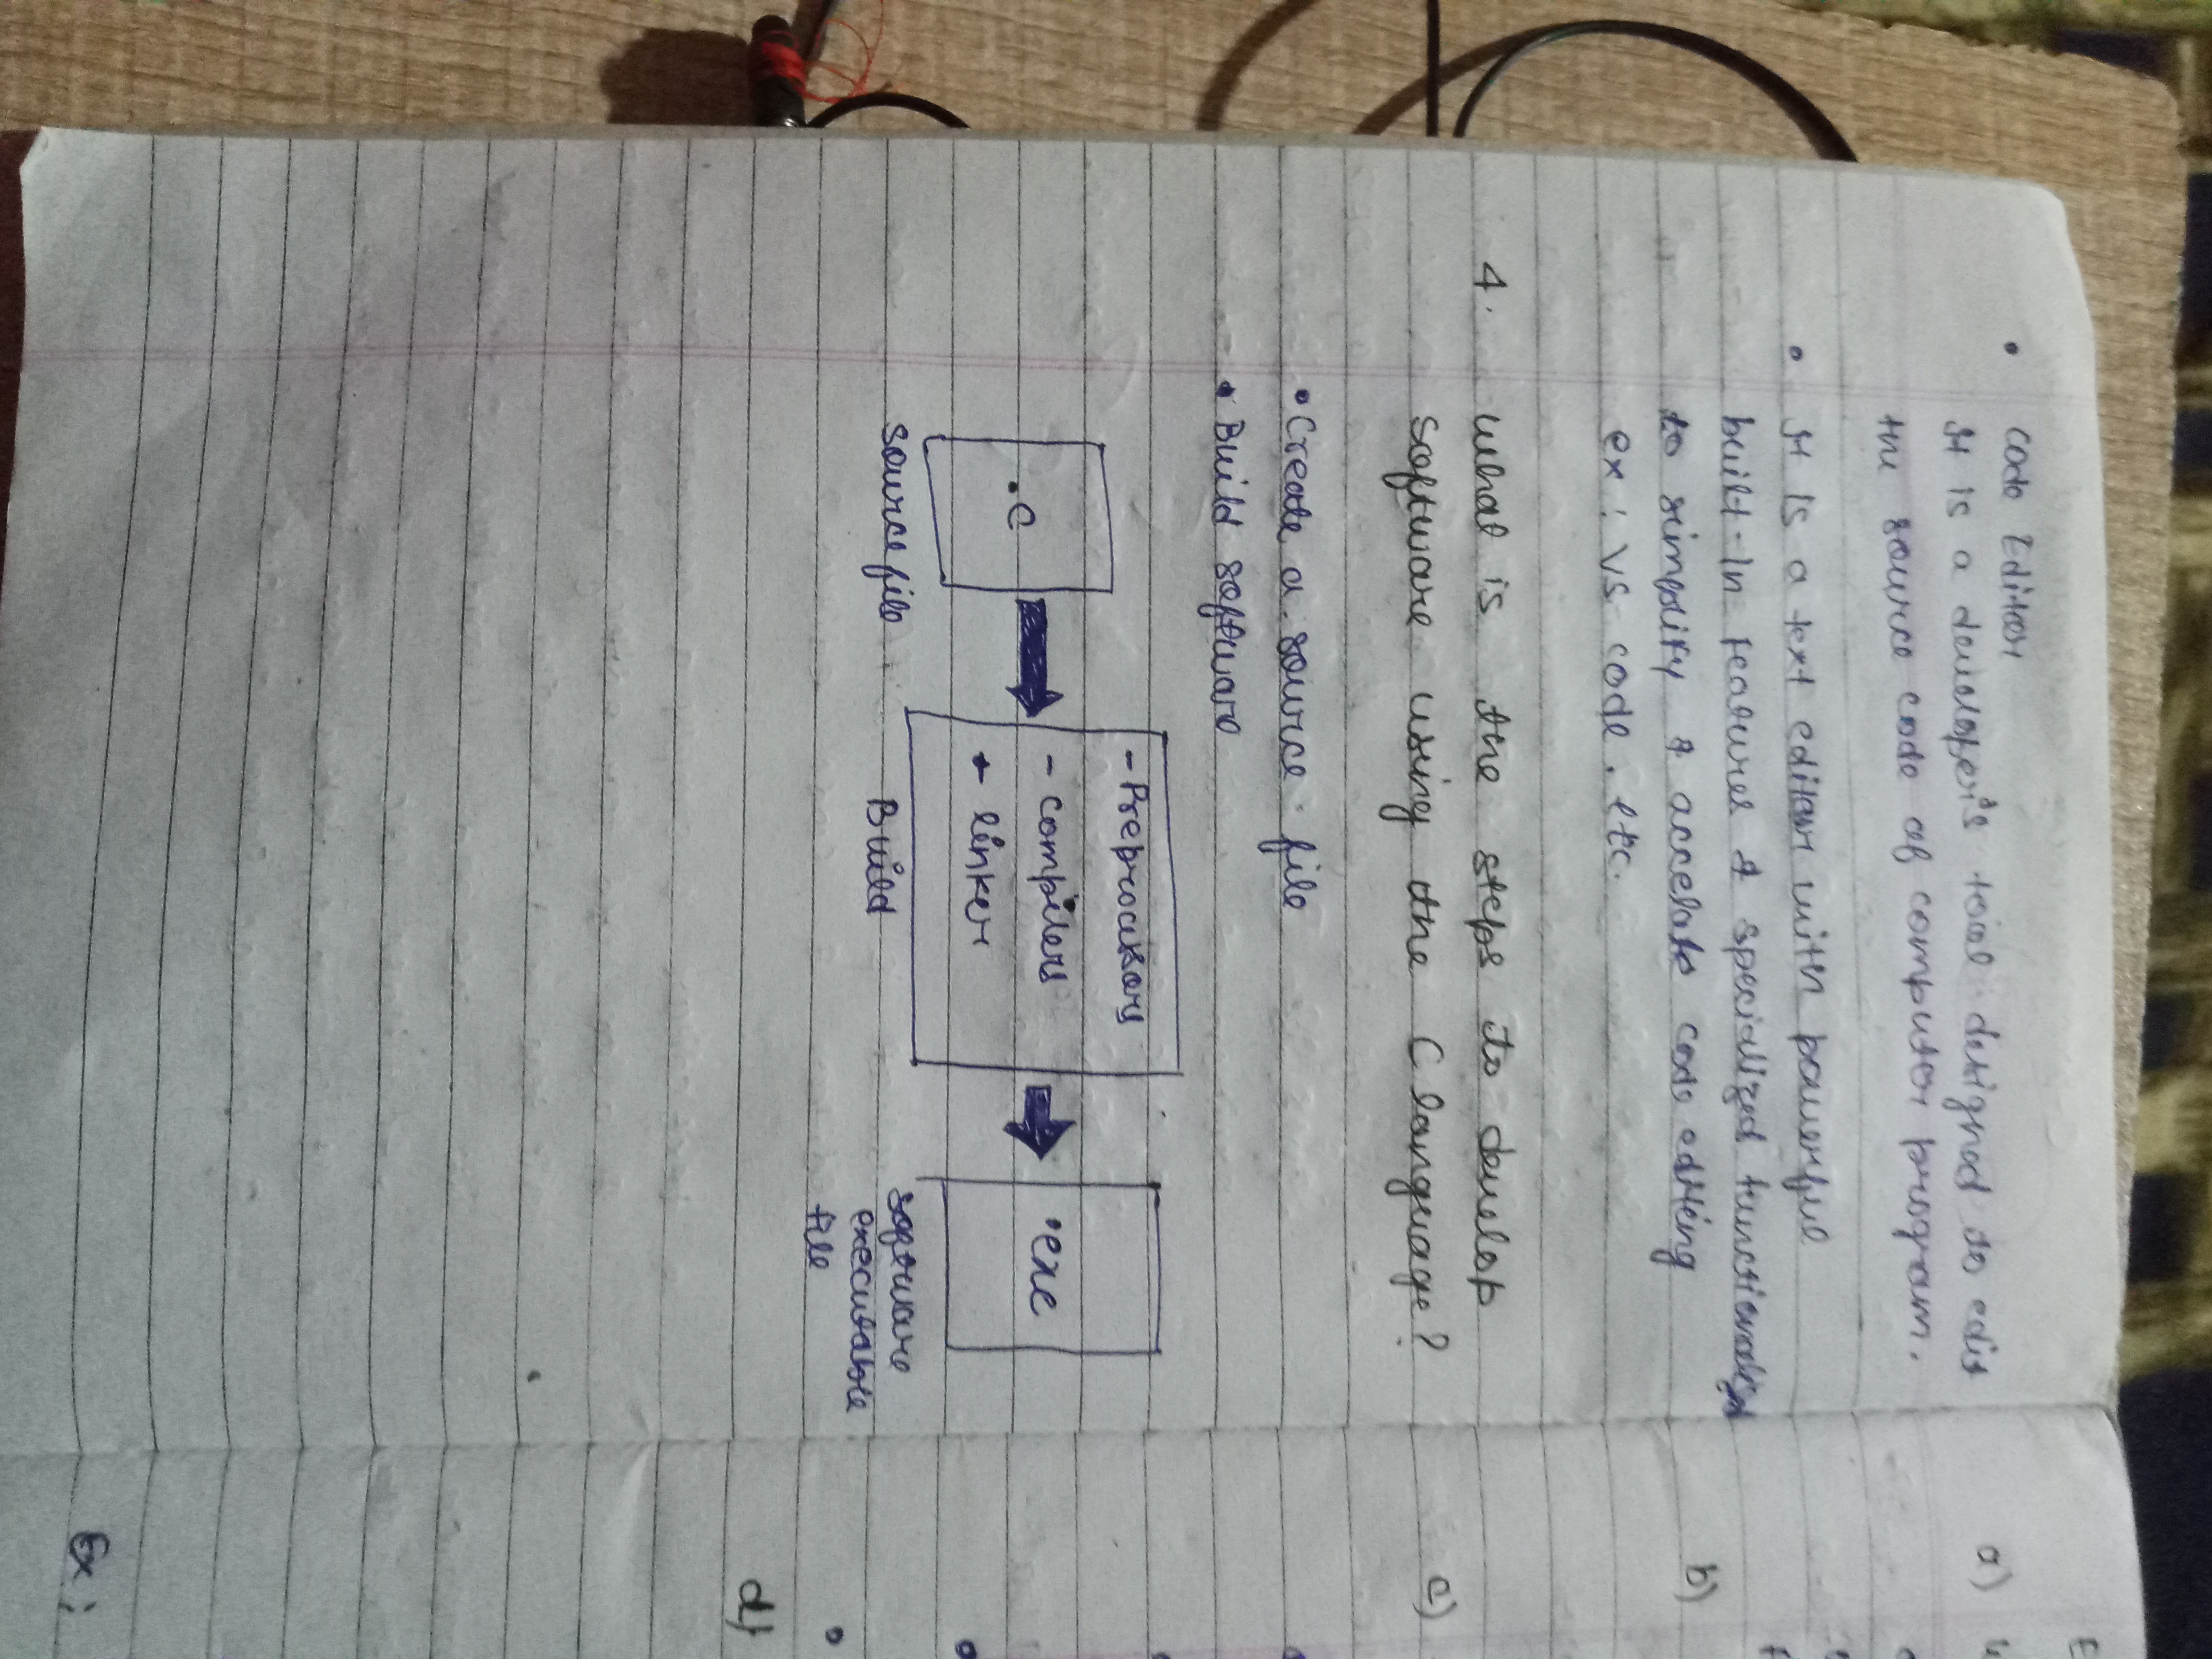 • Code Editor
It is a developer's tool designed to edit
the source code of computer program.
• It is a text editor with powerful
built-In features & specialized functionality
to simplify & accelate code editing
ex: VS code. etc.
4. What is the steps to develop
software using the C language?
• Create a source file
• Build software
- Preprocessors
.c
- compilers
.exe
- linker
source file
Build
software
executable
file
a)
b)
c)
d)
Ex: